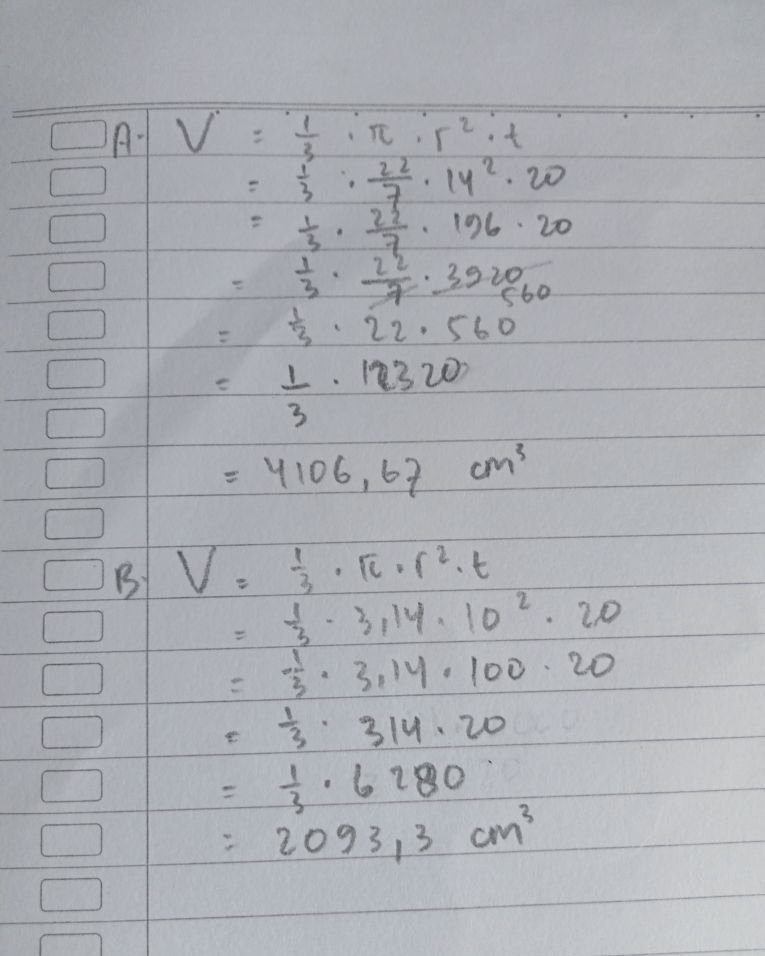 A. V = 1/3 · π · r² · t
= 1/3 · 22/7 · 14² · 20
= 1/3 · 22/7 · 196 · 20
= 1/3 · 22/7 · 3920 560
= 1/3 · 22 · 560
= 1/3 · 12320
= 4106,67 cm³
B. V = 1/3 · π · r² · t
= 1/3 · 3,14 · 10² · 20
= 1/3 · 3,14 · 100 · 20
= 1/3 · 314 · 20
= 1/3 · 6280
= 2093,3 cm³